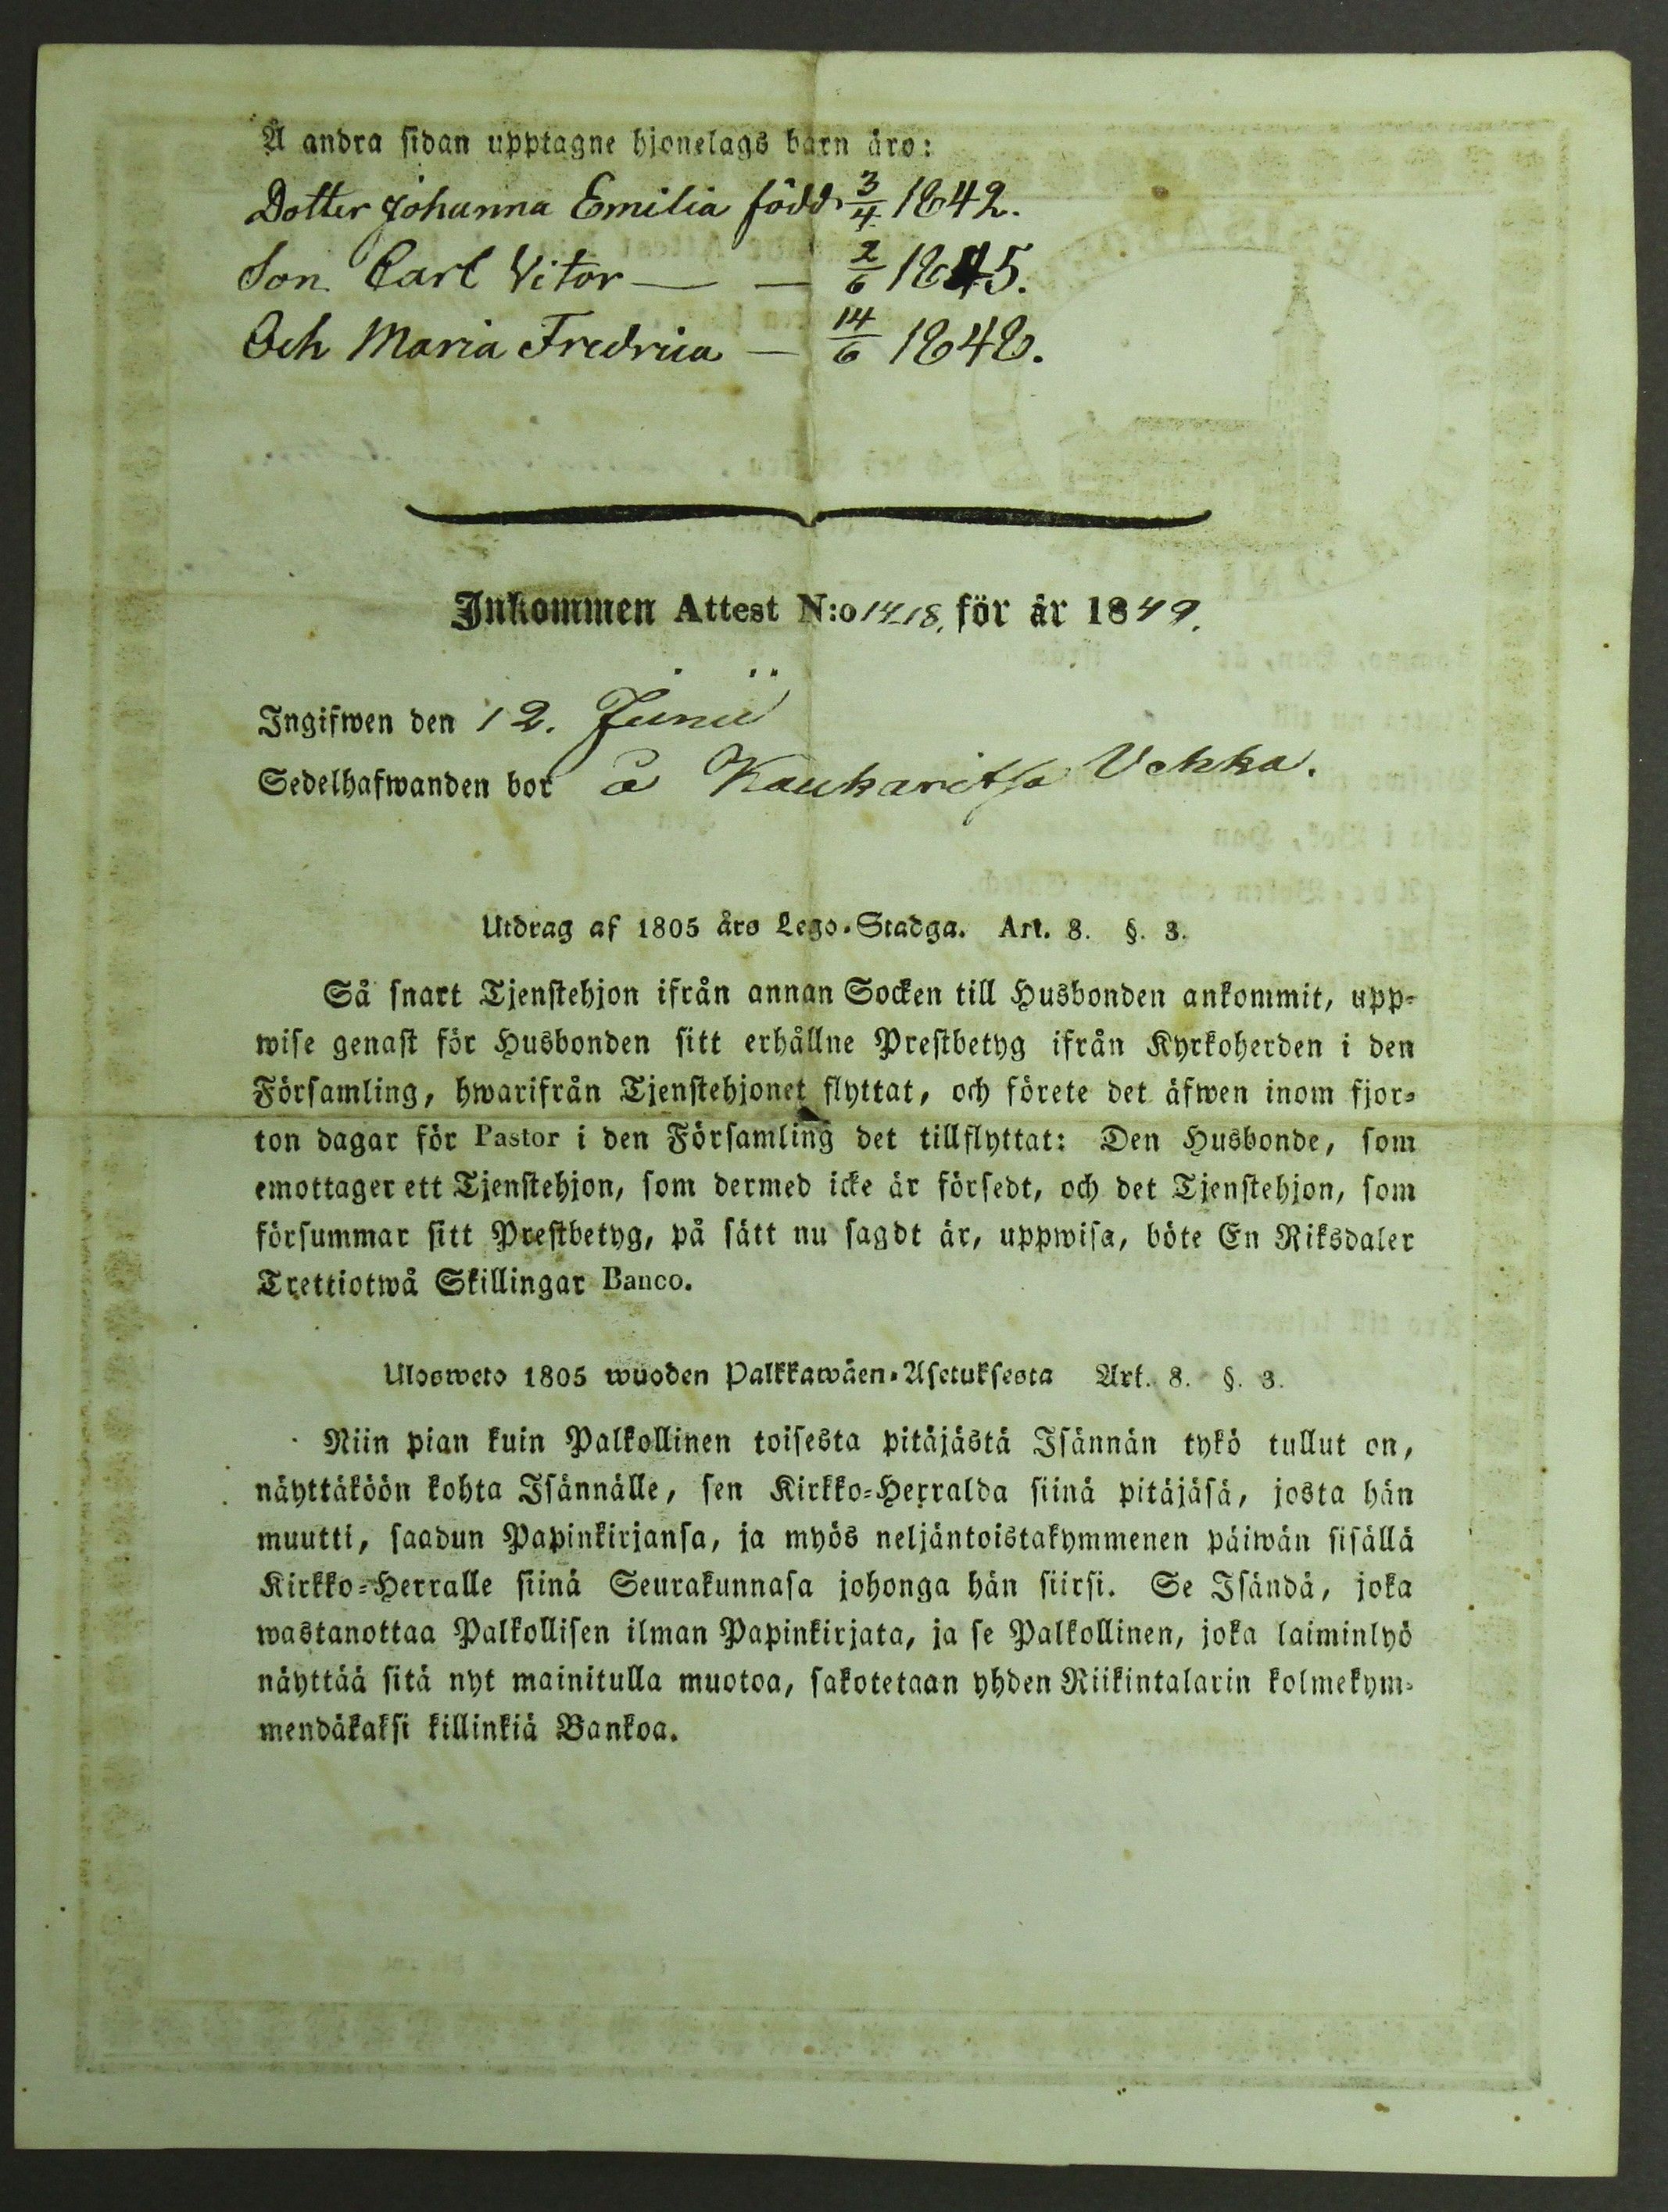 Å andra sidan upptagne hjonelags barn äro:
Dotter Johanna Emilia född 3/4 1842.
Son Carl Vitor — — 2/6 1845.
Och Maria Fredrica — 14/6 1848.
Inkommen Attest N:o 1418. för år 1849.
Ingifwen den 12. Junii
Sedelhafwanden bor å Kaukaritsa Uckka.
Utdrag af 1805 års Lego-Stadga. Art. 8. §. 3.
Så snart Tjenstehjon ifrån annan Socken till Husbonden ankommit, upp-
wise genast för Husbonden sitt erhållne Prestbetyg ifrån Kyrkoherden i den
Församling, hwarifrån Tjenstehjonet flyttat, och förete det äfwen inom fjor-
ton dagar för Pastor i den Församling det tillflyttat: Den Husbonde, som
emottager ett Tjenstehjon, som dermed icke är försedt, och det Tjenstehjon, som
försummar sitt Prestbetyg, på sätt nu sagdt är, uppwisa, böte En Riksdaler
Trettiotwå Skillingar Banco.
Ulosweto 1805 wuoden Palkkawäen-Asetuksesta Art. 8. §. 3.
Niin pian kuin Palkollinen toisesta pitäjästä Isännän tykö tullut on,
näyttäköön kohta Isännälle, sen Kirkko-Herralda siinä pitäjäsä, josta hän
muutti, saadun Papinkirjansa, ja myös neljäntoistakymmenen päiwän sisällä
Kirkko-Herralle siinä Seurakunnasa johonga hän siirsi. Se Isändä, joka
wastanottaa Palkollisen ilman Papinkirjata, ja se Palkollinen, joka laiminlyö
näyttää sitä nyt mainitulla muotoa, sakotetaan yhden Riikintalarin kolmekym-
mendäkaksi killinkiä Bankoa.